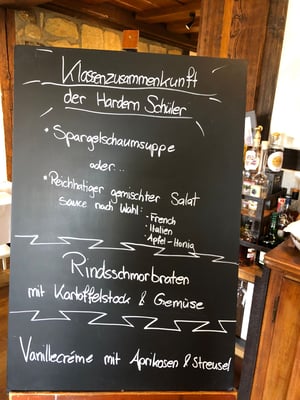 Klassenzusammenkunft
der Hardern Schüler
• Spargelschaumsuppe
oder...
• Reichhaltiger gemischter Salat
Sauce nach Wahl:
• French
• Italien
• Apfel-Honig
Rindsschmorbraten
mit Kartoffelstock & Gemüse
Vanillecréme mit Aprikosen & Streusel